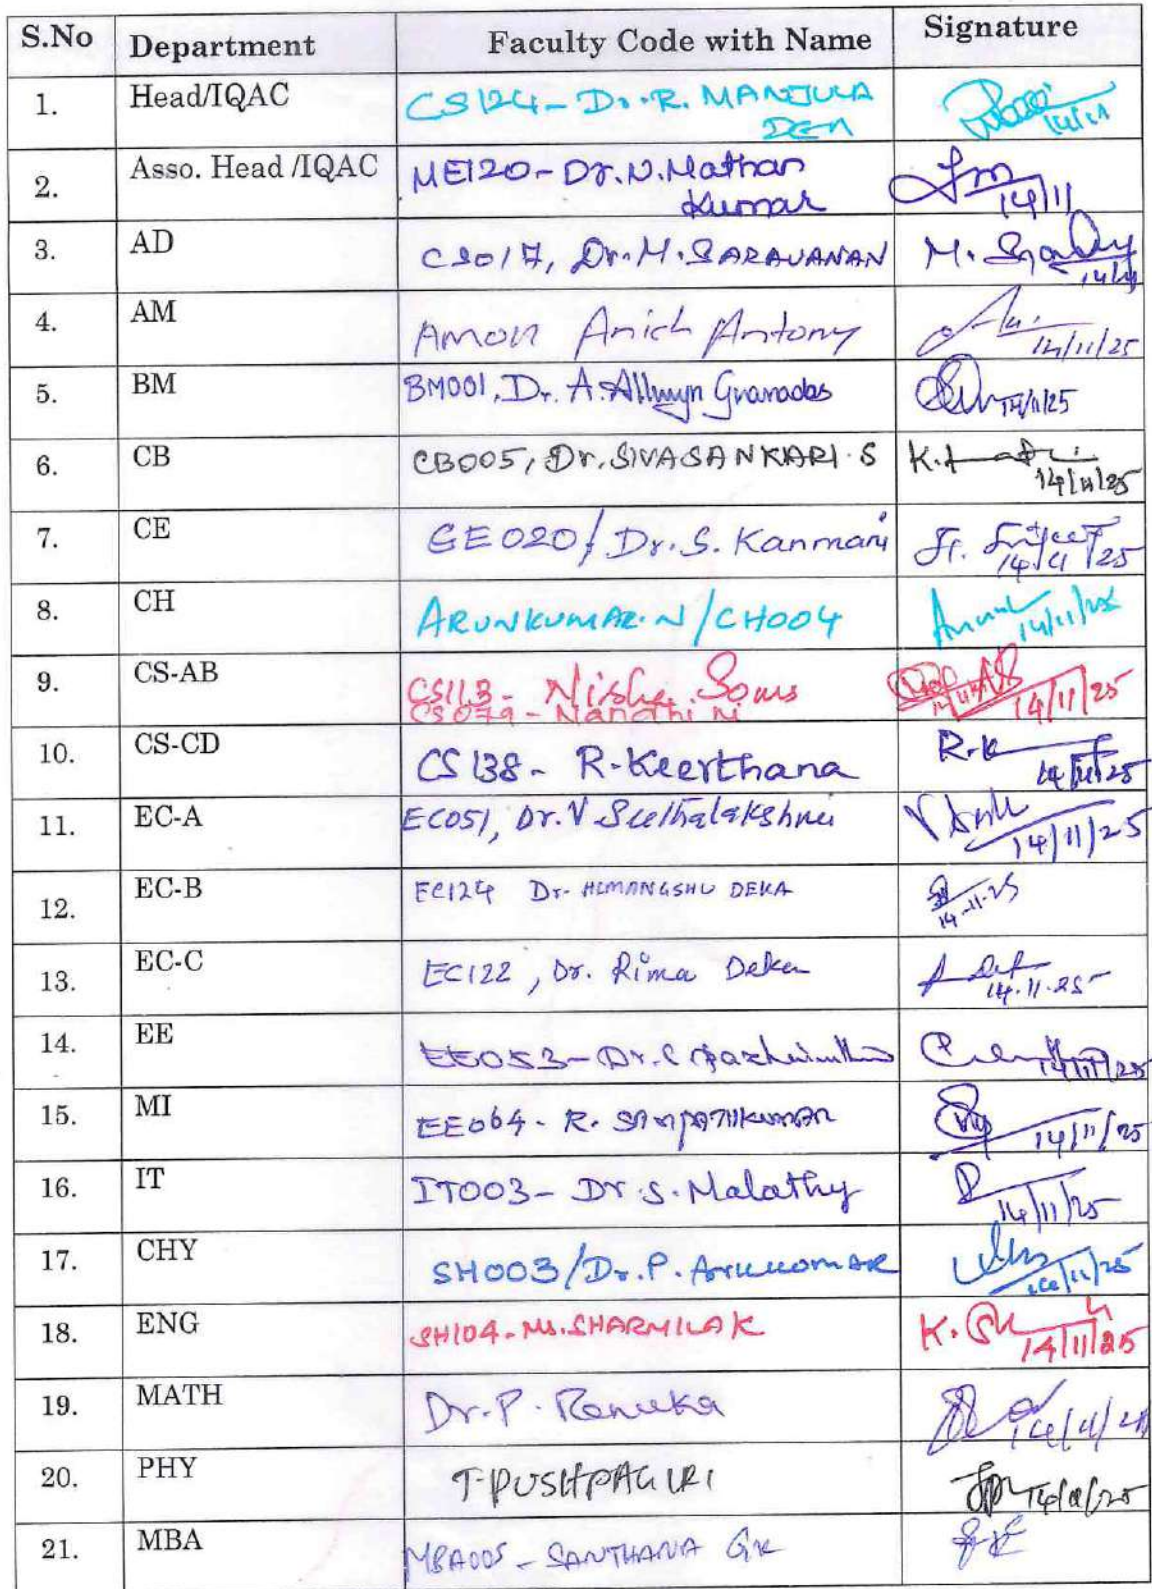 S.No Department Faculty Code with Name Signature
1. Head/IQAC CS124 - Dr. R. MANJULA
DEVI 14/11
2. Asso. Head /IQAC ME120 - Dr. N. Mathan
Kumar 14/11
3. AD CS017, Dr. M. SARAVANAN M. 14/11
4. AM Antony 14/11/25
5. BM BM001, Dr. A. Allwyn Gnanadas 14/11/25
6. CB CB005, Dr. SIVASANKARI. S 14/11/25
7. CE CE020/ Dr. S. Kanmani 14/11/25
8. CH ARUNKUMAR. N / CH004 14/11/25
9. CS-AB CS113 - Nisha Soms 14/11/25
CS079 - Nandhini
10. CS-CD CS138 - R. Keerthana R.K 14/11/25
11. EC-A EC051, Dr. V Seethalakshmi 14/11/25
12. EC-B EC124 Dr. HIMANGSHU DEKA 14-11-25
13. EC-C EC122, Dr. Rima Deka 14.11.25
14. EE EE053 - Dr. C 14/11/25
15. MI EE064 - R. SAMPATHKUMAR 14/11/25
16. IT IT003 - Dr. S. Malathy 14/11/25
17. CHY SH003/Dr. P. 14/11/25
18. ENG SH104 - Ms. SHARMILA K K. 14/11/25
19. MATH Dr. P. Renuka
20. PHY T. PUSHPAGIRI 14/11/25
21. MBA MBA005 - SANTHANA GK